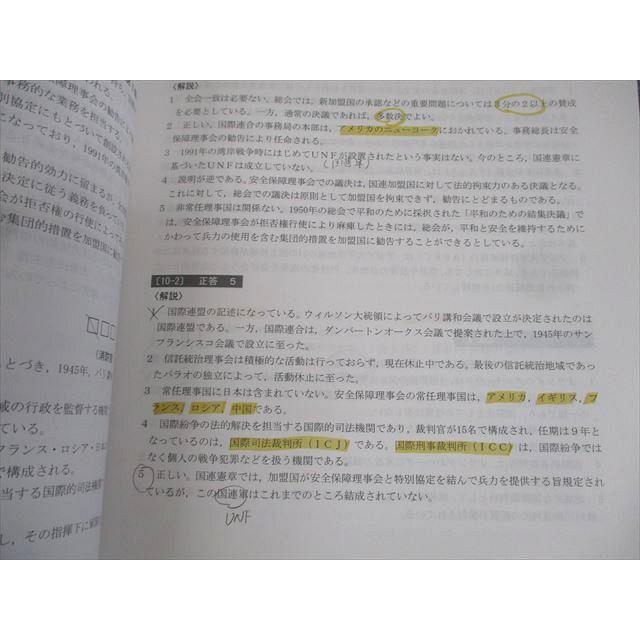 事務的な業務を担当する。
障理事会の勧告
別協定にもとづいて創設され
なっており,1991年の湾
勧告的効力に留まるが,
決定に従う義務を負ってい
会が拒否権の行使によって
む集団的措置を加盟国に勧
とづき,1945年,パリ講
域の行政を監督する機
ている。
フランス・ロシア・日本
で構成される。
当する国際的司法機
し,その指揮下に
〈解説〉
1 全会一致は必要ない。総会では,新加盟国の承認などの重要問題については3分の2以上の賛成
を必要としている。一方,通常の決議であれば,多数決でよい。
2 正しい。国際連合の事務局の本部は,アメリカのニューヨークにおかれている。事務総長は安全
保障理事会の勧告により任命される。
3 1991年の湾岸戦争時にはじめてUNFが設置されたという事実はない。今のところ,国連憲章に
基づいたUNFは成立していない。(国連軍)
4 説明が逆である。安全保障理事会での議決は,国連加盟国に対して法的拘束力のある決議となる。
これに対し,総会での議決は原則として加盟国を拘束できず,勧告にとどまるものである。
5 非常任理事国は関係ない。1950年の総会で平和のために採択された「平和のための結集決議」で
は,安全保障理事会が拒否権行使により麻痺したときには,総会が,平和と安全を維持するために
かわって兵力の使用を含む集団的措置を加盟国に勧告することができるとしている。
〔10-2〕 正答 5
〈解説〉
1 国際連盟の記述になっている。ウィルソン大統領によってパリ講和会議で設立が決定されたのは
国際連盟である。一方,国際連合は,ダンバートンオークス会議で提案された上で,1945年のサン
フランシスコ会議で設立に至った。
2 信託統治理事会は積極的な活動は行っておらず,現在休止中である。最後の信託統治地域であっ
たパラオの独立によって,活動休止に至った。
3 常任理事国に日本は含まれていない。安全保障理事会の常任理事国は,アメリカ,イギリス,フ
ランス,ロシア,中国である。
4 国際紛争の法的解決を担当する国際的司法機関であり,裁判官が15名で構成され,任期は9年と
なっているのは,国際司法裁判所(ICJ)である。国際刑事裁判所(ICC)は,国際紛争では
なく個人の戦争犯罪などを扱う機関である。
5 正しい。国連憲章では,加盟国が安全保障理事会と特別協定を結んで兵力を提供する旨規定され
ているが,この国連軍はこれまでのところ結成されていない。
UNF